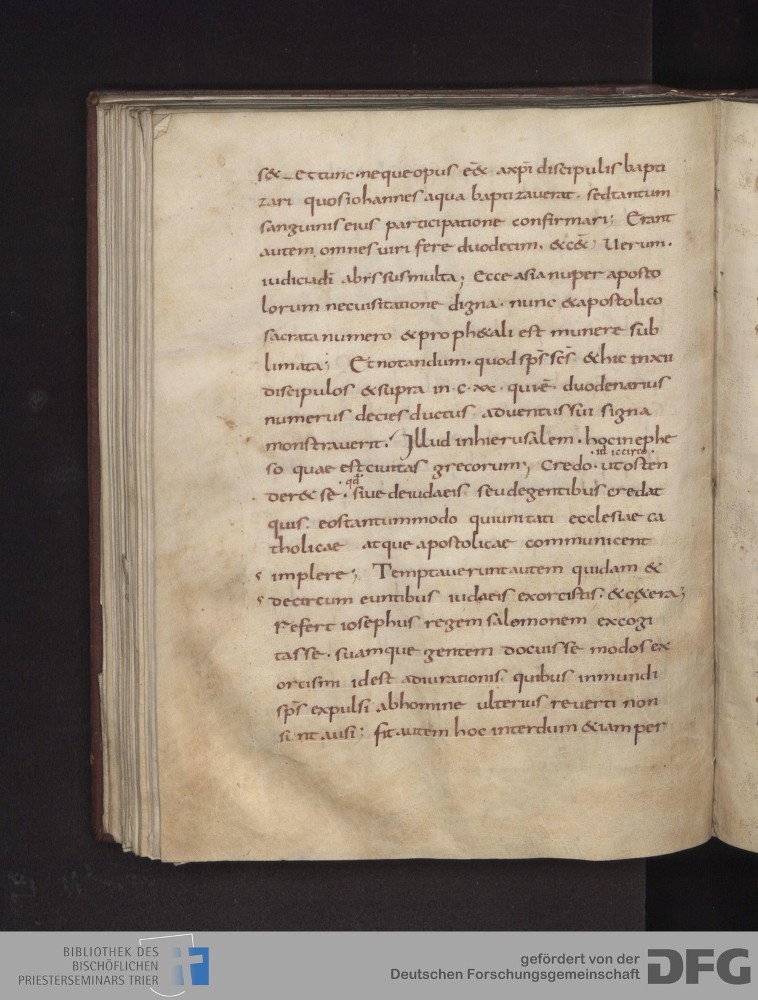 s& Et tunc neque opus eēt axp̄i discipulis bapti
zari quos iohannes aqua baptizauerat. sed tantum
sanguinis eius participatione confirmari; Erant
autem omnes uiri fere duodecim. &c&; Uerum.
iudicia dī abyssus multa; Ecce asia nuper aposto
lorum nec uisitatione digna. nunc & apostolico
sacrata numero & proph&ali est munere sub
limata; Et notandum. quod sp̄s sc̄s & hic in xii
discipulos & supra in .c.xx. qui ē. duodenarius
numerus decies ductus aduentus sui signa
monstrauerit. Illud in hierusalem. hoc in ephe
ut iccirco.
so quae est ciuitas grecorum; Credo. ut osten
der& se. qd̄ siue de iudaeis seu de gentibus credat
quis. eos tantummodo qui unitati ecclesiae ca
tholicae atque apostolicae communicent
implere; Temptauerunt autem quidam &
de circum euntibus iudaeis exorcistis. & c&era;
Refert iosephus regem salomonem excogi
tasse. suamque gentem docuisse modos ex
orcismi id est adiurationis. quibus inmundi
sp̄s expulsi ab homine ulterius reuerti non
sint ausi; fit autem hoc interdum & iam per
BIBLIOTHEK DES
BISCHÖFLICHEN
PRIESTERSEMINARS TRIER
gefördert von der
Deutschen Forschungsgemeinschaft
DFG